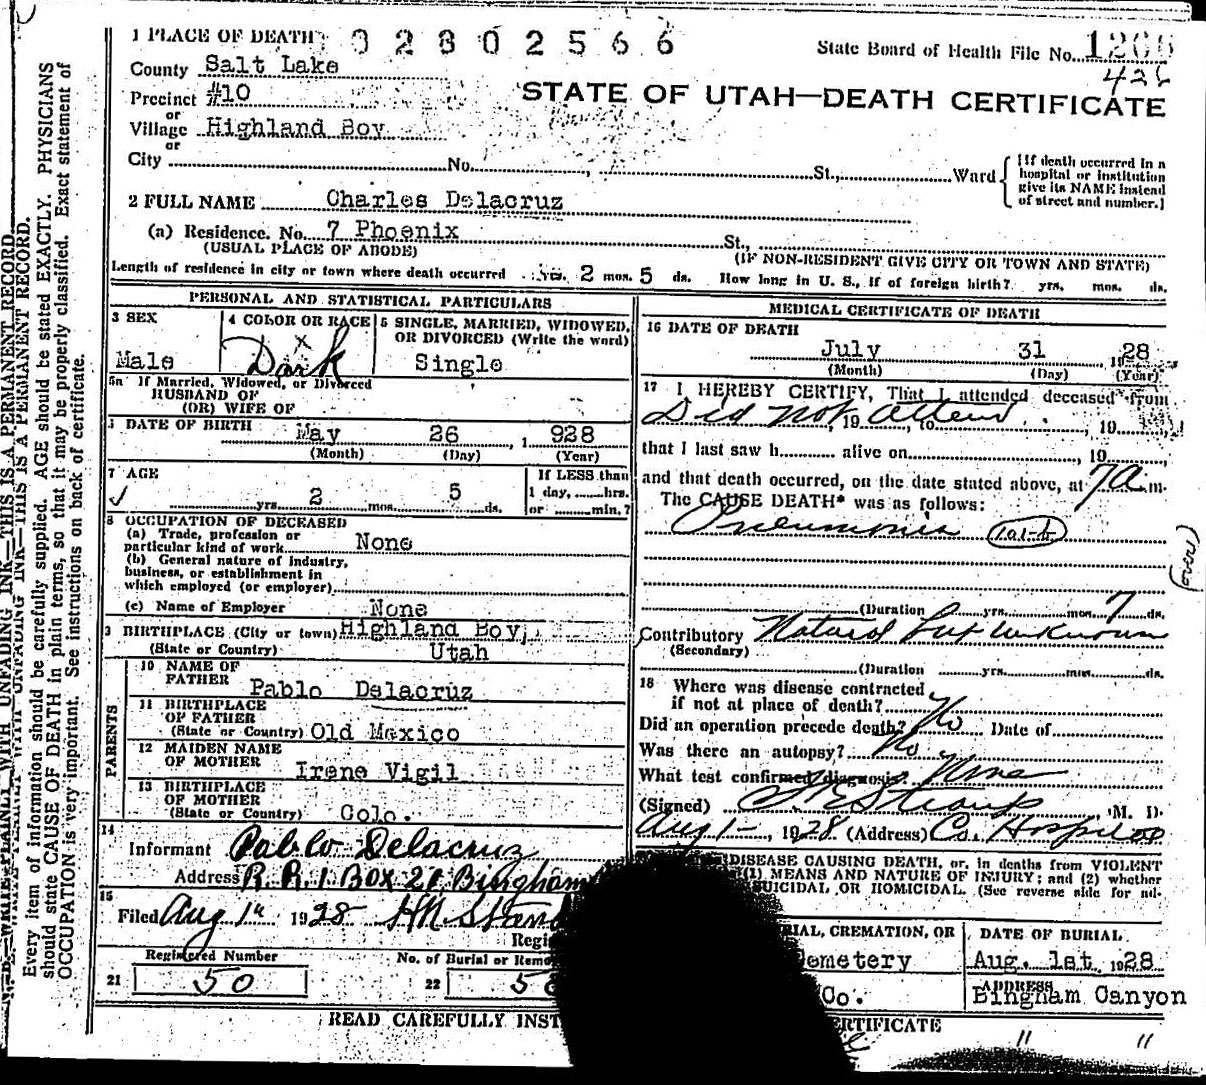 1 PLACE OF DEATH 02802566
State Board of Health File No. 1266
426
County Salt Lake
Precinct #10
or
Village Highland Boy
or
City No. St., Ward
STATE OF UTAH—DEATH CERTIFICATE
{If death occurred in a
hospital or institution
give its NAME instead
of street and number.}
2 FULL NAME Charles Delacruz
(a) Residence. No. 7 Phoenix St.,
(USUAL PLACE OF ABODE) (IF NON-RESIDENT GIVE CITY OR TOWN AND STATE)
Length of residence in city or town where death occurred yrs. 2 mos. 5 ds. How long in U. S., if of foreign birth? yrs. mos. ds.
PERSONAL AND STATISTICAL PARTICULARS
3 SEX
Male
4 COLOR OR RACE
x
Dark
5 SINGLE, MARRIED, WIDOWED,
OR DIVORCED (Write the word)
Single
5a If Married, Widowed, or Divorced
HUSBAND OF
(OR) WIFE OF
DATE OF BIRTH
May 26, 1 928
(Month) (Day) (Year)
7 AGE
yrs. 2 mos. 5 ds.
If LESS than
1 day, hrs.
or min.?
8 OCCUPATION OF DECEASED
(a) Trade, profession or
particular kind of work None
(b) General nature of industry,
business, or establishment in
which employed (or employer)
(c) Name of Employer None
9 BIRTHPLACE (City or town) Highland Boy,
(State or Country) Utah
PARENTS
10 NAME OF
FATHER Pablo Delacruz
11 BIRTHPLACE
OF FATHER
(State or Country) Old Mexico
12 MAIDEN NAME
OF MOTHER Irene Vigil
13 BIRTHPLACE
OF MOTHER
(State or Country) Colo.
14
Informant Pablo Delacruz
Address R. R. 1 Box 21 Bingham
15
Filed Aug 1st 1928 HN Stand
Regis
Registered Number
21 50
No. of Burial or Remo
22 50
MEDICAL CERTIFICATE OF DEATH
16 DATE OF DEATH
July 31 1928
(Month) (Day) (Year)
17 I HEREBY CERTIFY, That I attended deceased from
Did not attend, 19, to, 19
that I last saw h alive on, 19
and that death occurred, on the date stated above, at 7 a m.
The CAUSE DEATH* was as follows:
Pneumonia 101-b
(over)
(Duration yrs. mos. 7 ds.
Contributory Natural but unknown
(Secondary)
(Duration yrs. mos. ds.
18 Where was disease contracted
if not at place of death?
Did an operation precede death? No Date of
Was there an autopsy? No
What test confirmed diagnosis None
(Signed) , M. D.
Aug 1-, 1928. (Address) Co. Hospital
DISEASE CAUSING DEATH, or, in deaths from VIOLENT
(1) MEANS AND NATURE OF INJURY; and (2) whether
SUICIDAL OR HOMICIDAL. (See reverse side for ad-
IAL, CREMATION, OR
emetery
DATE OF BURIAL
Aug. 1st 1928
Co.
ADDRESS
Bingham Canyon
READ CAREFULLY INST
RTIFICATE
" "
N. B.—WRITE PLAINLY WITH UNFADING INK—THIS IS A PERMANENT RECORD.
Every item of information should be carefully supplied. AGE should be stated EXACTLY. PHYSICIANS
should state CAUSE OF DEATH in plain terms, so that it may be properly classified. Exact statement of
OCCUPATION is very important. See instructions on back of certificate.